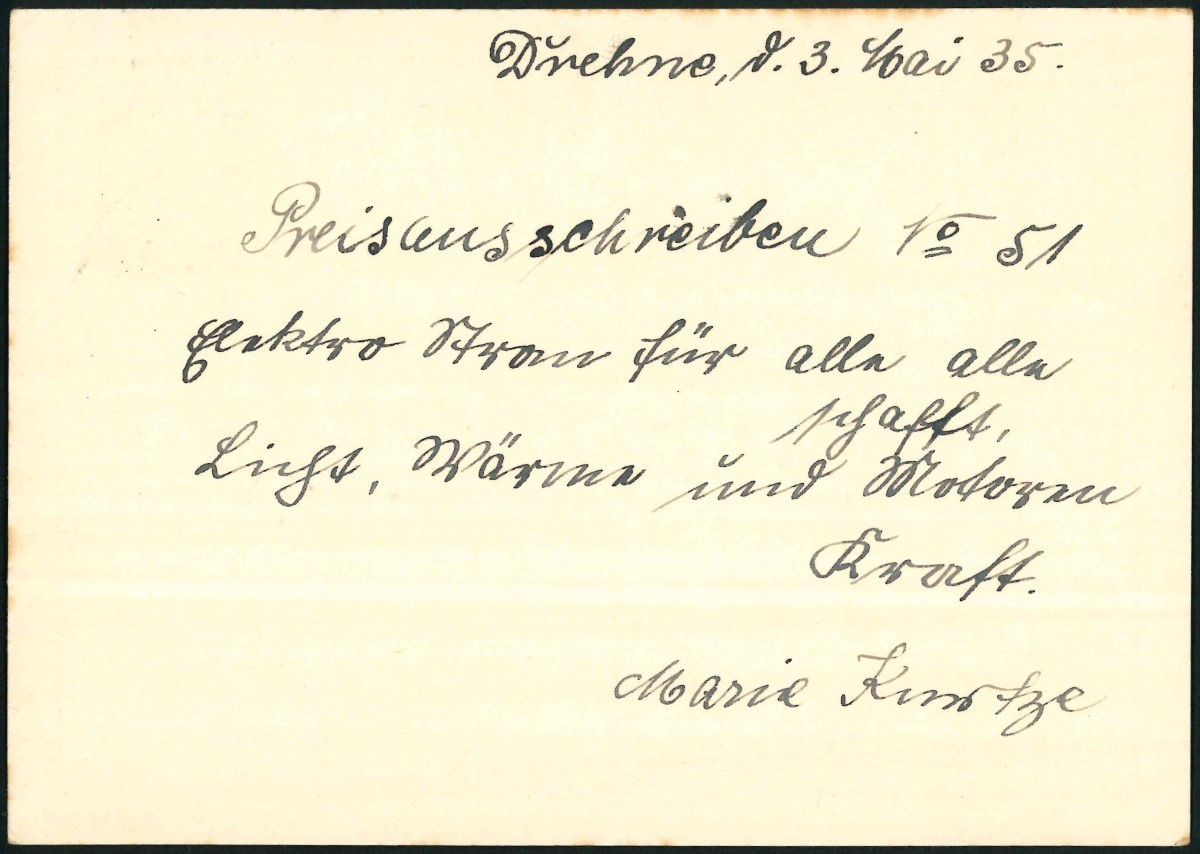 Drehne, d. 3. Mai 35.
Preisausschreiben No 51
Elektro Strom für alle alle
schafft,
Licht, Wärme und Motoren
Kraft.
Marie